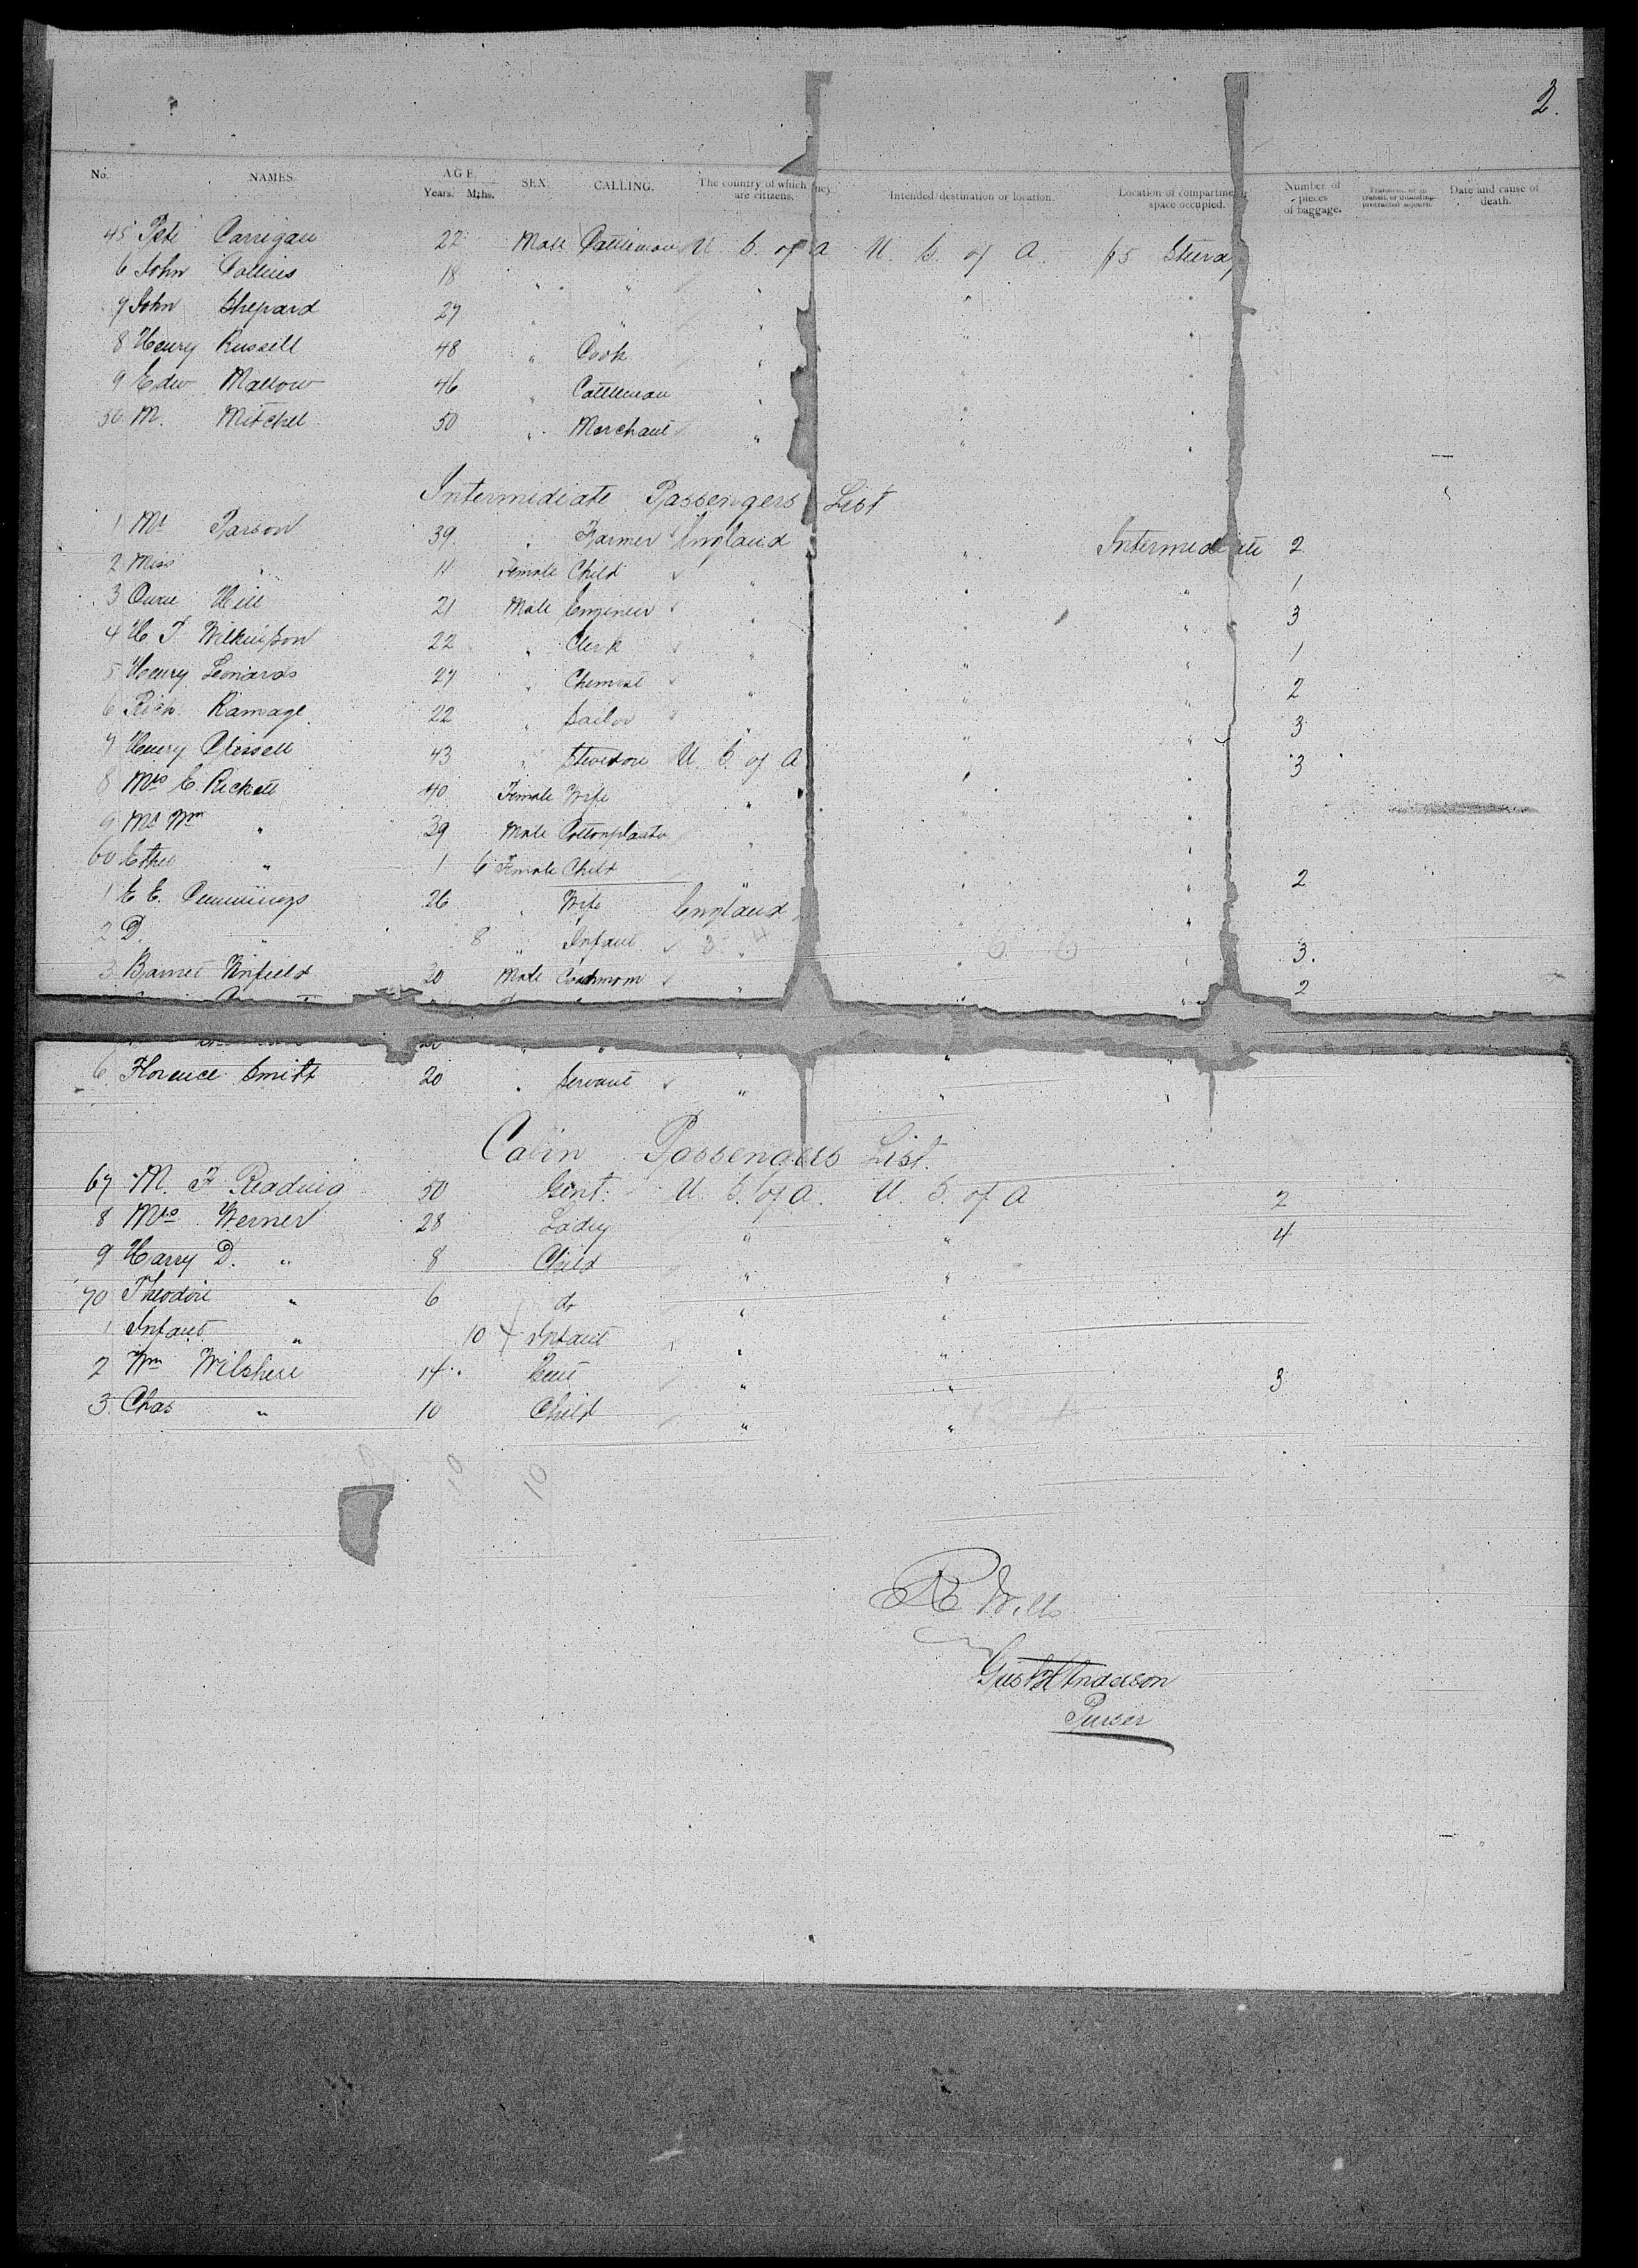 2.
No. NAMES. AGE. Years. Mths. SEX. CALLING. The country of which they are citizens. Intended destination or location. Location of compartment or space occupied. Number of pieces of baggage. Date and cause of death.
45 Pete Carrigan 22 Male Cattleman U. S. of A U. S. of A.
6 John Collins 18 " " " "
7 John Shepard 27 " " " " "
8 Henry Russell 48 " Cook " " "
9 Edw Mallow 46 " Cattleman " " "
50 M. Mitchel 50 " Merchant " " "
Intermediate Passengers List
1 Mr Parson 39 " Farmer England " Intermediate 2
2 Miss " 11 Female Child " " " 1
3 Hill 21 Male Engineer " " " 3
4 H T Wilkinson 22 " Clerk " " " 1
5 Henry Leonards 27 " Chemist " " " 2
6 Rich. Ramage 22 " Sailor " " " 3
7 Henry 43 " Stevedore U. S. of A " " 3
8 Mrs E. Rickett 40 Female Wife " " "
9 Mr Wm " 39 Male Cottonplanter " " "
60 Ethel " 1 6 Female Child " " " 2
1 E E. Cummings 26 " Wife England " "
2 D. " 8 " Infant " " " 3.
3 Barnet Winfield 20 Male Coachman " " " 2
6 Florence Smith 20 " Servant " "
Cabin Passengers List.
67 M. F. Reading 50 Gent. U. S. of A. U. S. of A 2
8 Mrs Werner 28 Lady " " 4
9 Harry D. " 8 Child " "
70 Theodore " 6 do " "
1 Infant " 10 Infant " "
2 Wm Wilshire 14 Gent " " 3
3 Chas " 10 Child " "
10 10
Wills
Gust H Anderson
Purser